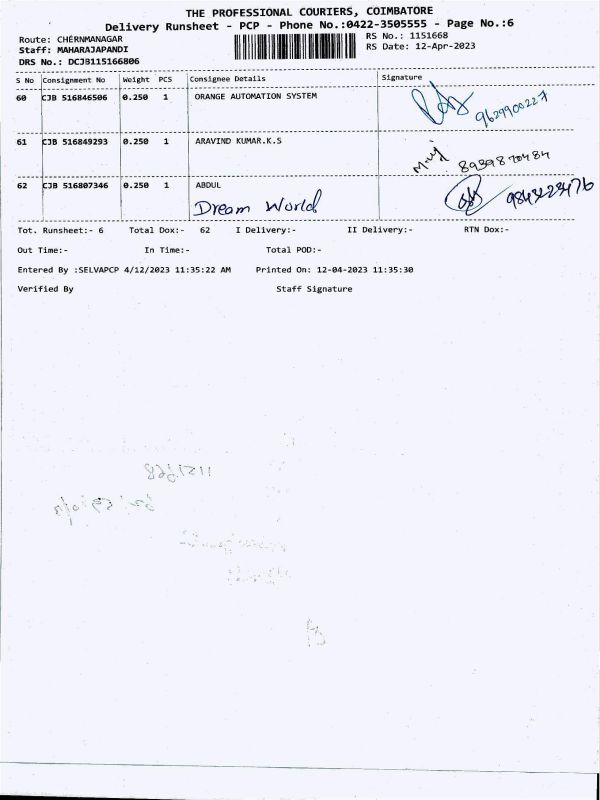 THE PROFESSIONAL COURIERS, COIMBATORE
Delivery Runsheet - PCP - Phone No.:0422-3505555 - Page No.:6
Route: CHERNMANAGAR RS No.: 1151668
Staff: MAHARAJAPANDI RS Date: 12-Apr-2023
DRS No.: DCJB115166806
S No Consignment No Weight PCS Consignee Details Signature
60 CJB 516846506 0.250 1 ORANGE AUTOMATION SYSTEM 9629900227
61 CJB 516849293 0.250 1 ARAVIND KUMAR.K.S 8939870484
62 CJB 516807346 0.250 1 ABDUL
Dream World 9843223476
Tot. Runsheet:- 6 Total Dox:- 62 I Delivery:- II Delivery:- RTN Dox:-
Out Time:- In Time:- Total POD:-
Entered By :SELVAPCP 4/12/2023 11:35:22 AM Printed On: 12-04-2023 11:35:30
Verified By Staff Signature